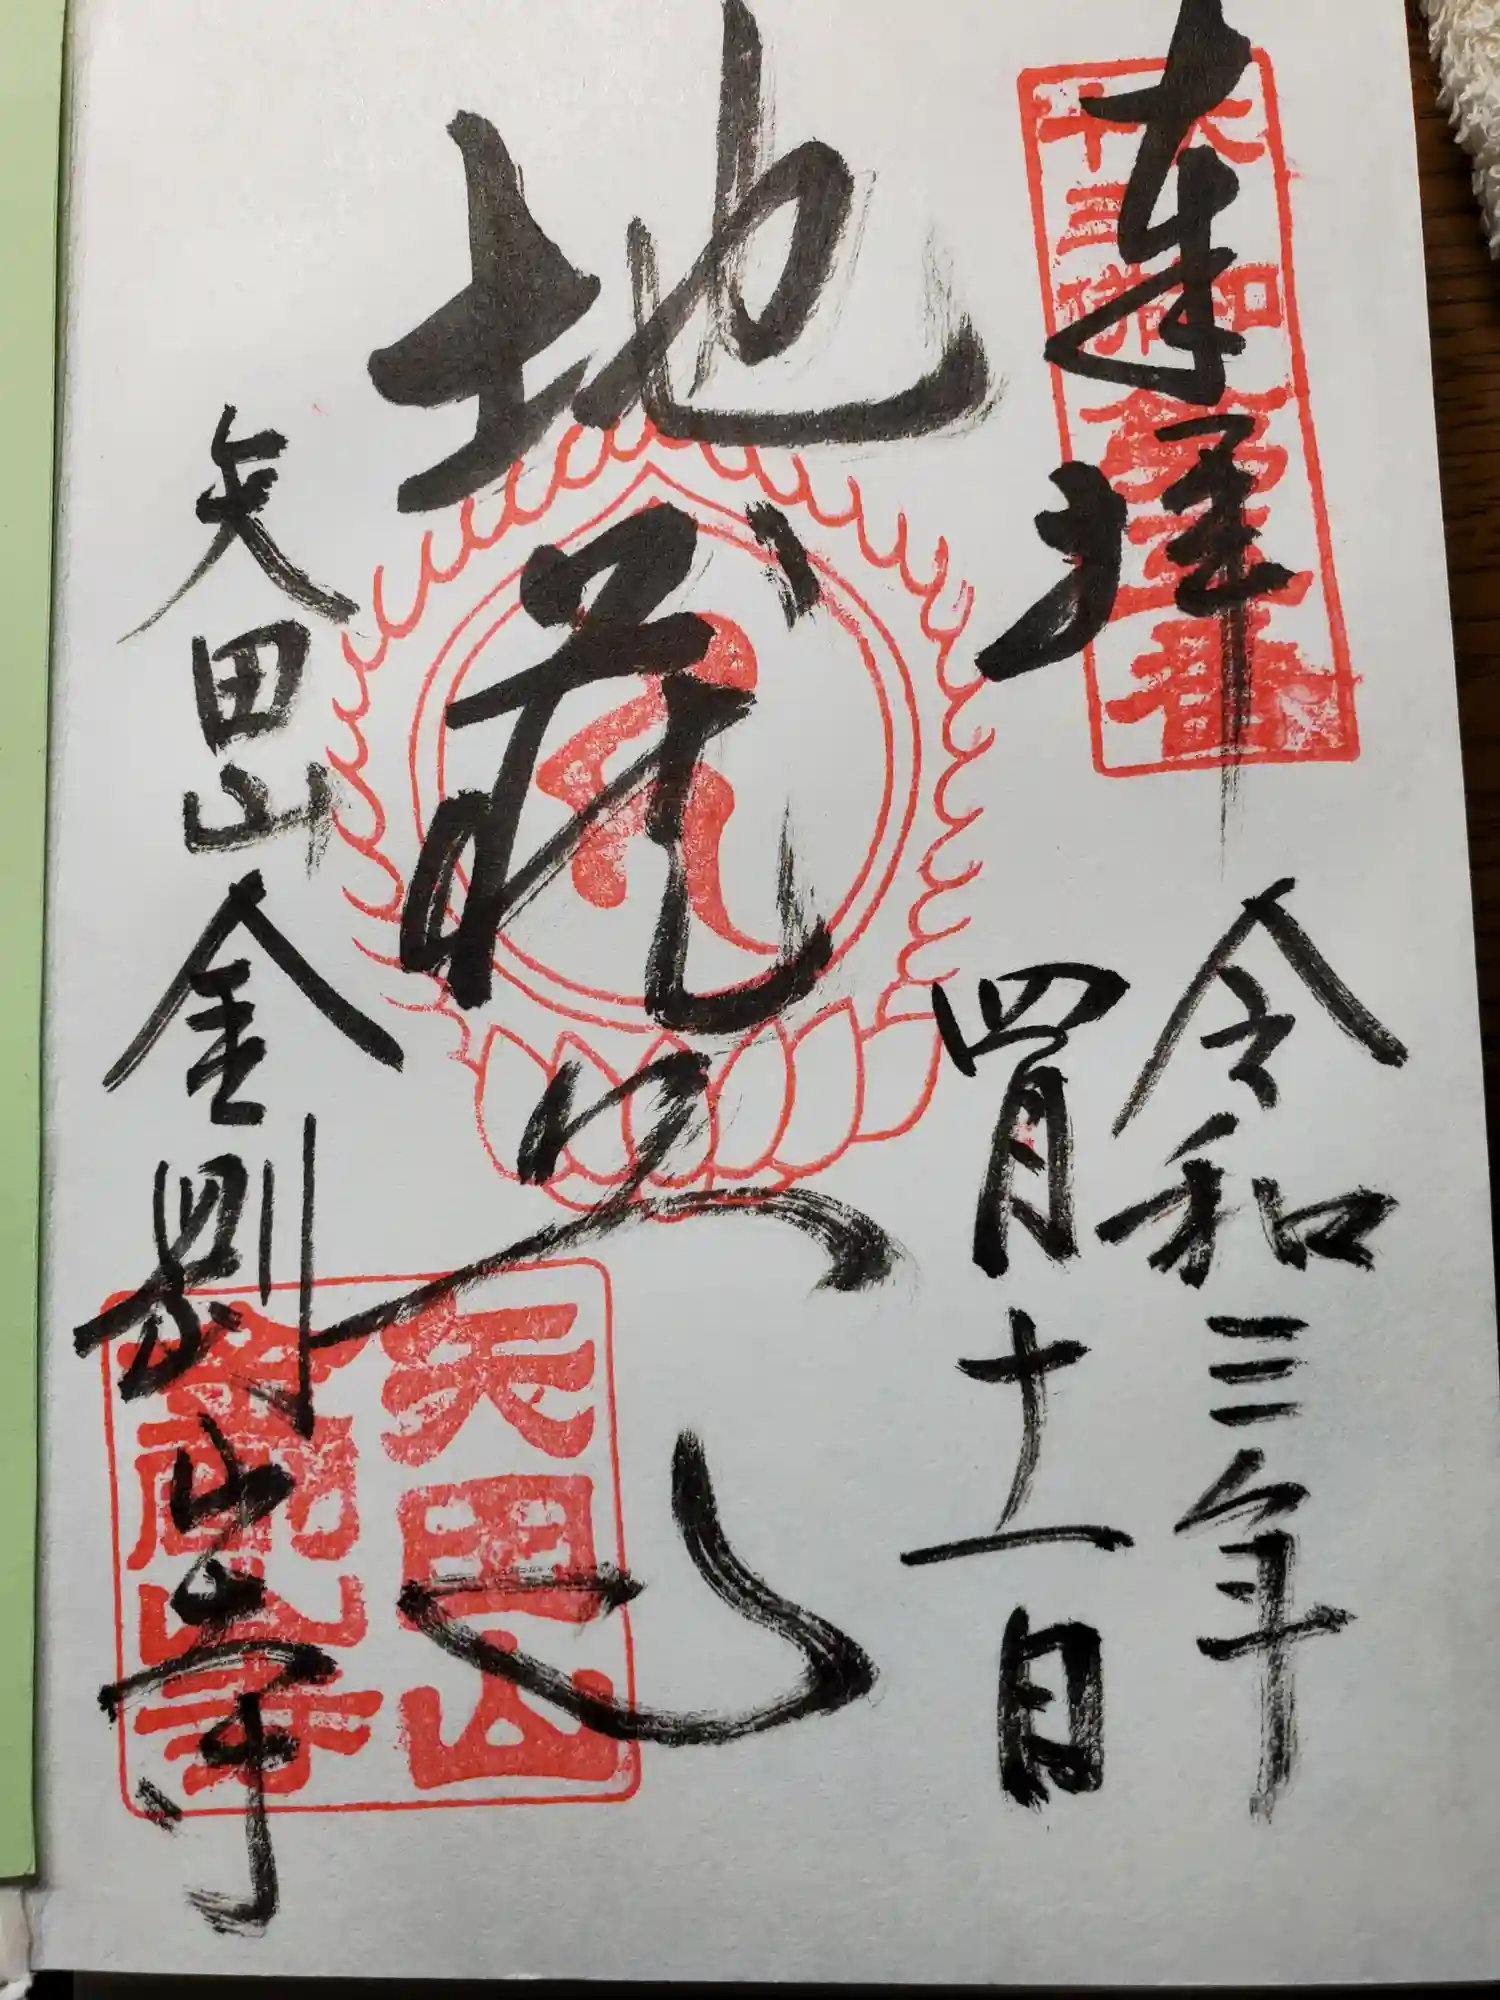 奉拝
大和
十三佛
第五番
令和三年
四月十一日
地蔵
矢田山金剛山寺
矢田山
金剛山寺